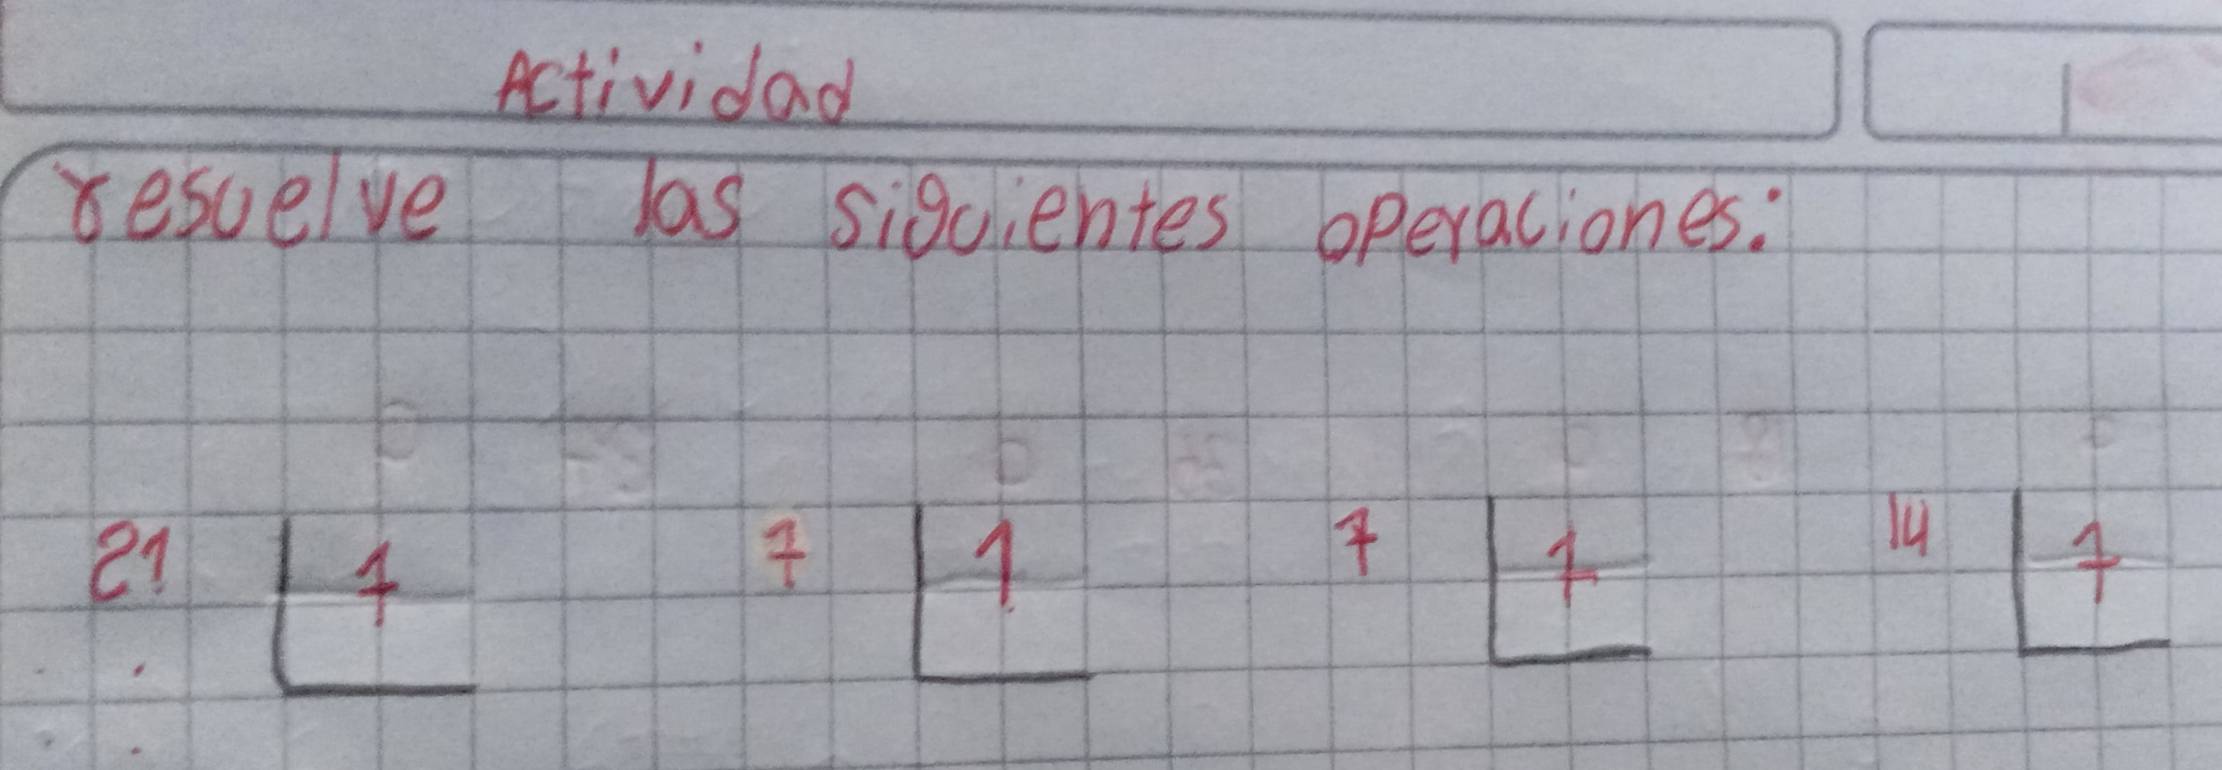 Actividad
resuelve las siguientes operaciones:
21 7 7 1 7 7 14 7